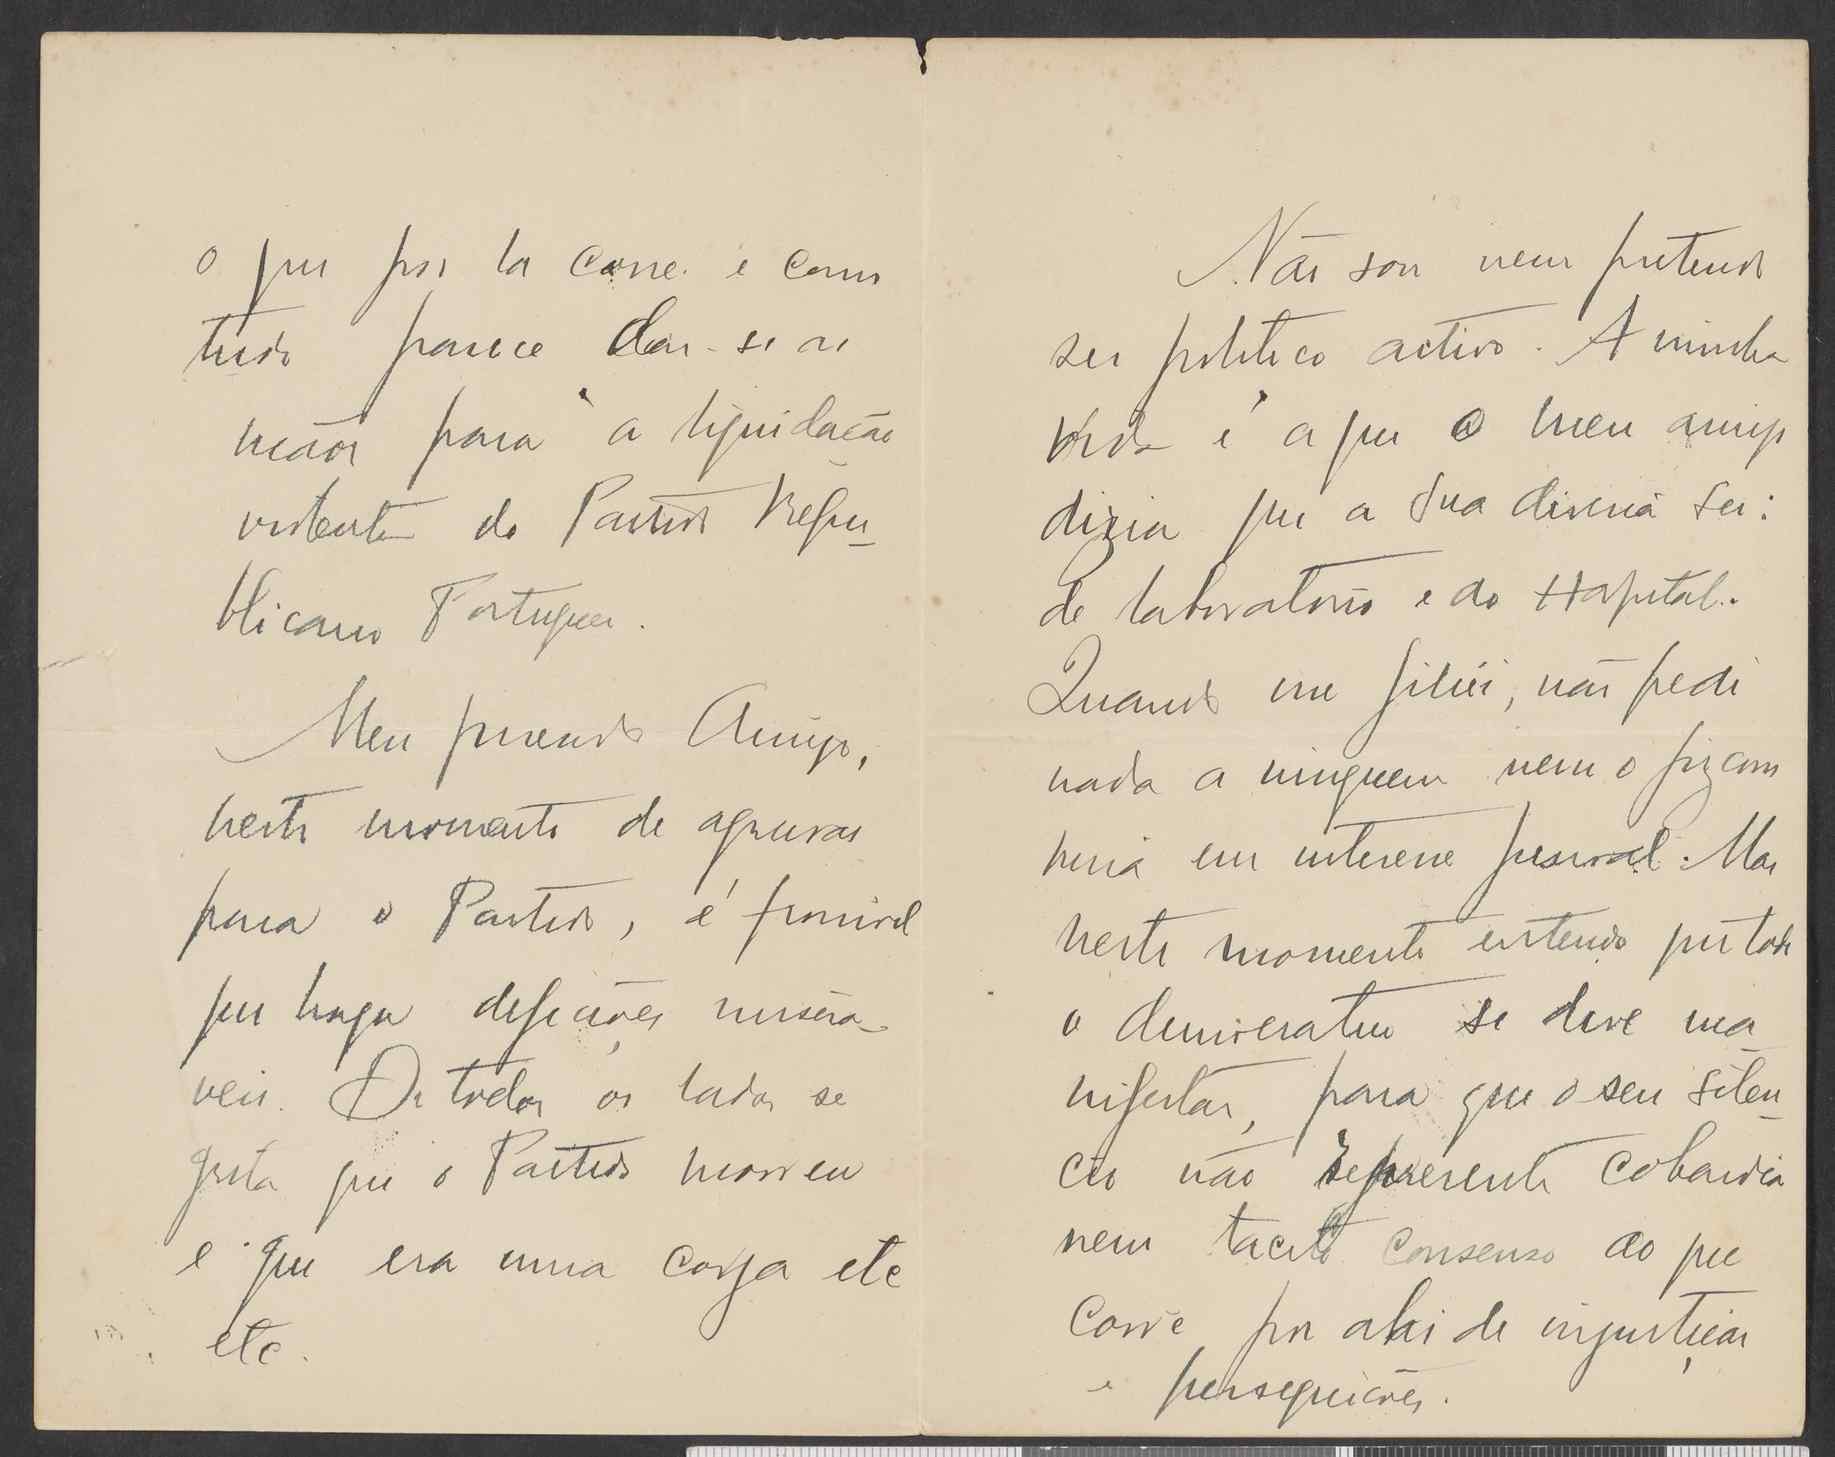 o que por la corre e como
tudo parece dar-se as
mãos para a liquidação
violenta do Partido Repu-
blicano Portuguez.
Meu prezado Amigo,
neste momento de agruras
para o Partido, é provavel
que haja defecções miséra-
veis. De todos os lados se
grita que o Partido morreu
e que era uma corja etc
etc.
Não sou nem pretendo
ser politico activo. A minha
vida é a que o meu amigo
dizia que a sua deveria ser:
de laboratorio e do Hospital.
Quando me filiei, não pedi
nada a ninguem nem o fiz com
interesse pessoal. Mas
neste momento entendo que todo
o democratico se deve ma
nifestar, para que o seu silen-
cio não represente cobardia
nem tacito consenso ao que
corre por ahi de injustiças
e perseguições.